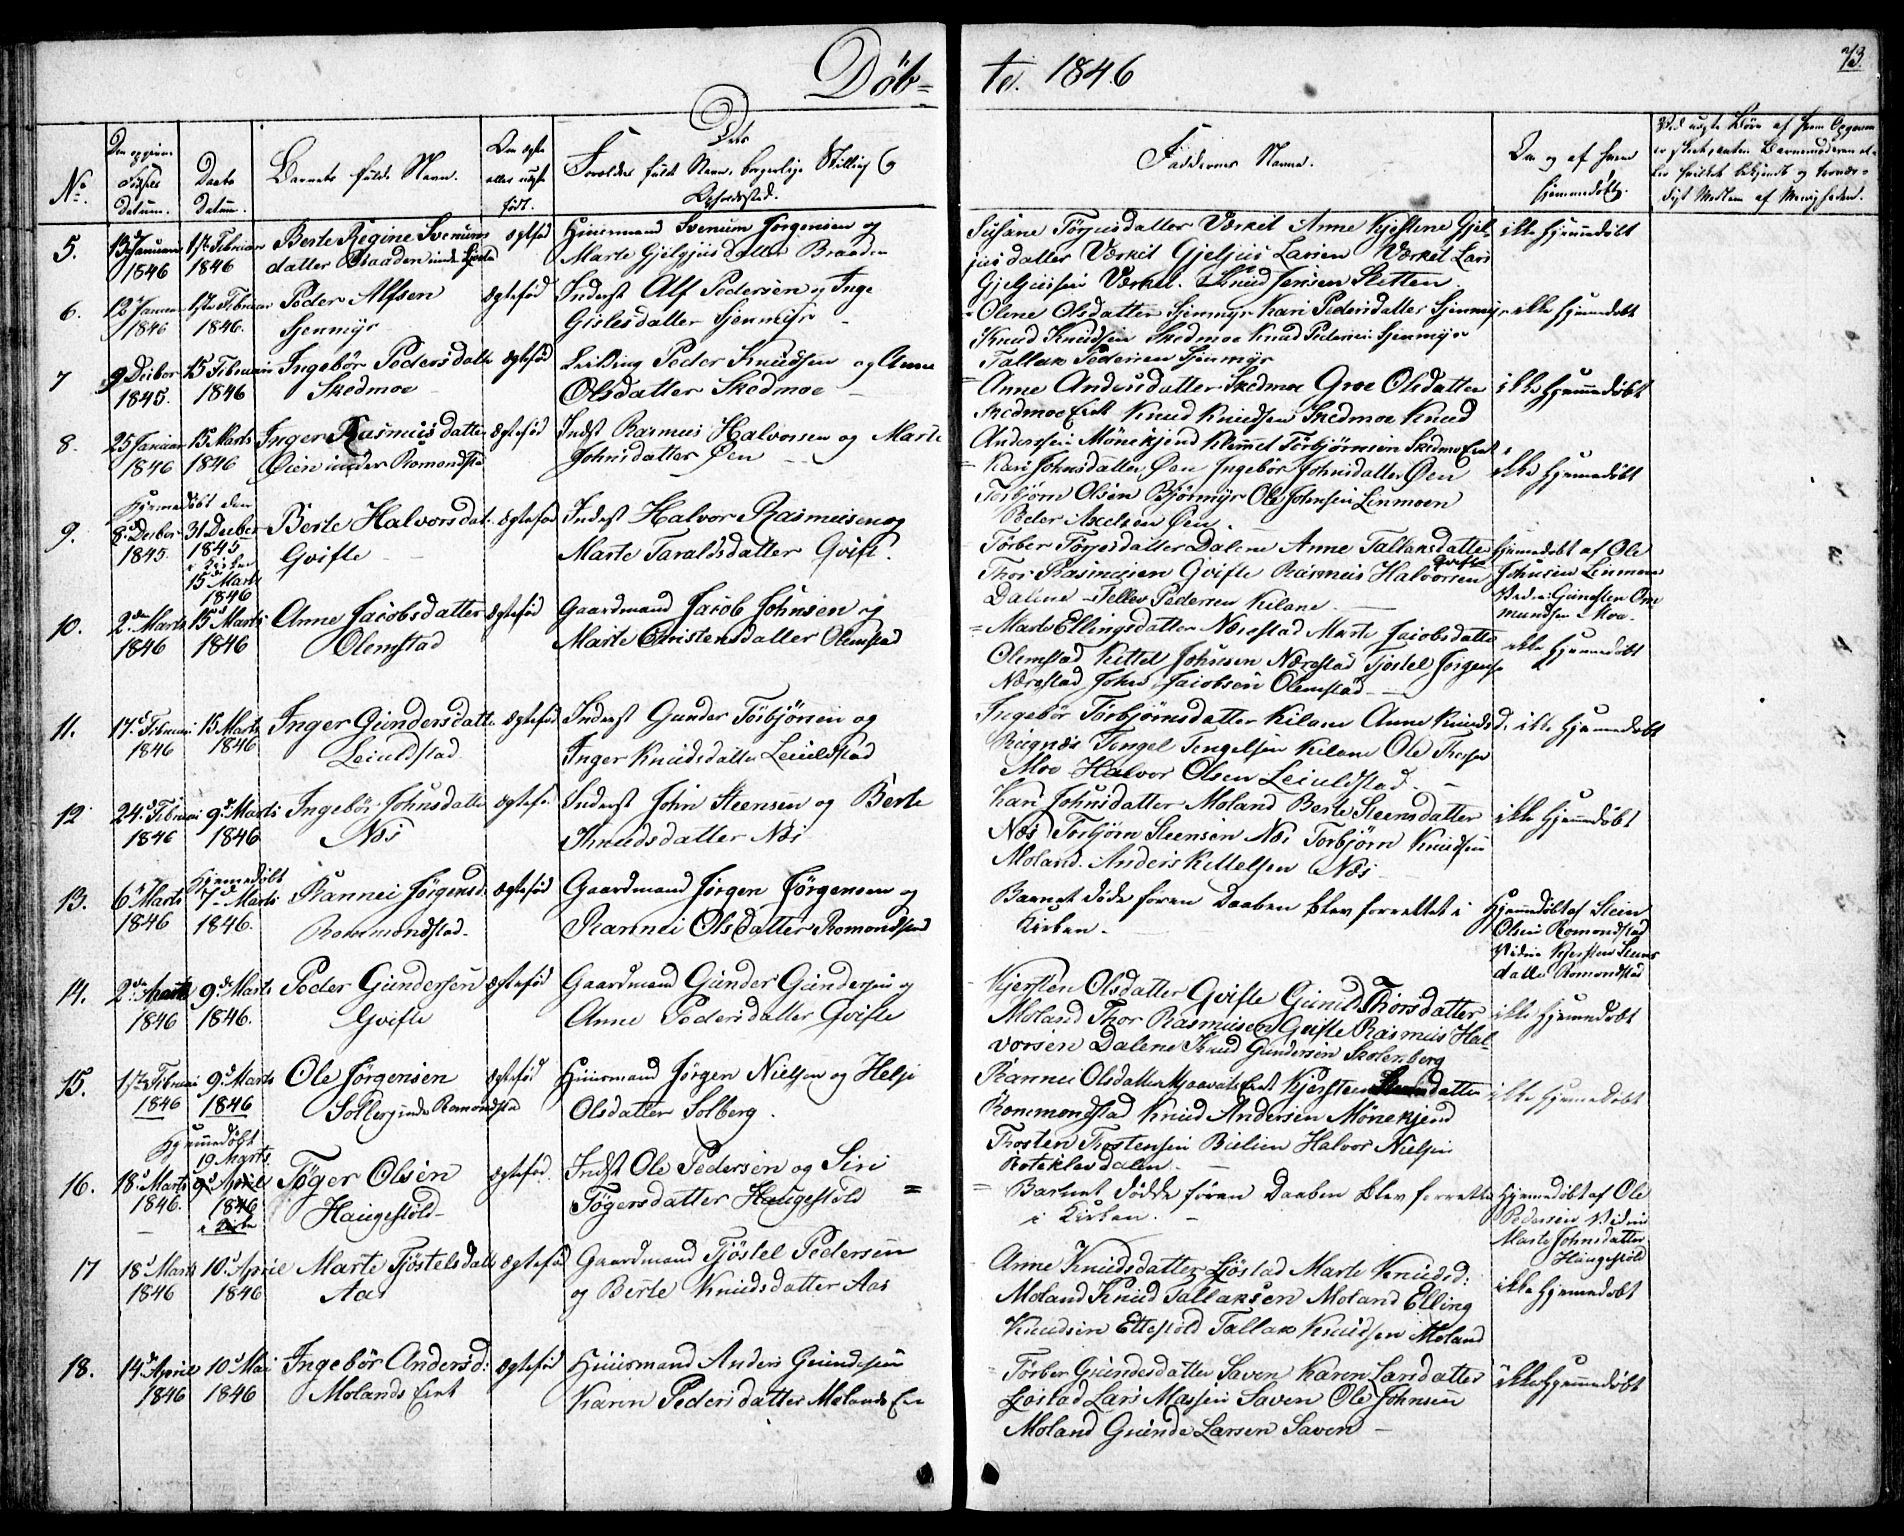 Døb=
te. 1846
73.
No.
Daabs
Datum.
Barnets fulde Navn.
Om ægte
eller uægte
født.
Forældres fulde Navn, borgerlige Stilling og
Opholdssted.
Faddernes Navne.
Om og af hvem
hjemmedøbt.
5.
13 Januar
1846
1ste Februar
1846
Berte Regine Svenums
datter Braaden under
ægtefød
Huusmand Svenum Jørgensen og
Marte Gjelgjusdatter Braaden
Susane Tørjusdatter Værket Anne Kjestine Gjel-
jusdatter Værket Gjeljus Larsen Værket Lars
Gjeljusen Værket. Knud Jensen Sletten
ikke hjemmedøbt
6.
12 Januar
1846
1ste Februar
1846.
Peder Alfsen
Sjenmyr
ægtefød
Inderst Alf Pedersen og Inge
Gislesdatter Sjenmyr
Olene Olsdatter Sjenmyr Kari Pedersdatter Sjenmyr
Knud Knudsen Skedmoe Knud Pedersen Sjenmyr
Tallak Pedersen Sjenmyr
ikke hjemmedøbt
7
9 Decbor
1845.
15 Februar
1846
Ingebør Pedersdatt
Skedmoe
ægtefød
Peder Knudsen og Anne
Olsdatter Skedmoe
Anne Andersdatter Skedmoe Groe Olsdatter
Skedmoe Eiet Knud Knudsen Skedmoe Knud
Andersen Mönekjend Klemmet Törbjörnsen Skedmo Eiet
ikke hjemmedøbt
8.
25 Januar
1846
15 Marts
1846
Inger Rasmusdatter
Øien under Romondsta
ægtefød
Indst Rasmus Halvorsen og Marte
Johnsdatter Øen
Kari Johnsdatter Øen Ingebør Johnsdatter Øen
Torbjörn Olsen Bjørmyr Ole Johnsen Linmoen
Peder Axelsen Øen
ikke hjemmedøbt
9.
Hjemmedøbt den
8 Decbor
1845.
31 Decber
1845
i Kirken
15 Marts
1846
Berte Halvorsdat
Gvifte
ægtefød
Inderst Halvor Rasmusen og
Marte Taraldsdatter Gvift.
Törber Törjesdatter Dalene Anne Tallaksdatter
Gvifte
Thor Rasmusen Gvifte Rasmus Halvorsen
Dalene Tellev Pedersen Kilane
hjemmedøbt af Ole
Johnsen Linmoen
10.
2den Marts
1846
15 Marts
1846
Anne Jacobsdatter
Olemstad
ægtefød
Gaardmand Jacob Johnsen og
Marte Christensdatter Olemstad
Marte Ellingsdatter Nærestad Marte Jacobsdatter
Olemstad Kittel Johnsen Nærestad Tjöstel Jörgens
Nærestad John Jacobsen Olemstad
ikke hjemmedøbt
11.
17 Februar
1846
15 Marts
1846
Inger Gundersdatt
Leiuldstad
ægtefød
Inderst Gunder Törbjörsen og
Inger Knudsdatter Leiuldstad
Ingebör Törbjörnsdatter Kilane Anne Knuds d.
Rugnæs Tengel Tengelsen Kilane Ole
Moe Halvor Olsen Leiuldstad.
ikke hjemmedøbt
12
24 Februar
1846
9 Marts
1846
Ingebör Johnsdatt
Næs
ægtefø.
Inderst John Steensen og Berte
Knudsdatter Næs
Kari Johnsdatter Moland Berte Steensdatter
Næs Torbjörn Steensen Næs Torbjörn Knudsen
Moland. Anders Kittelsen Næs
ikke hjemmedøbt
13.
6 Marts
1846
Hjemmedøbt
7 Marts
1846.
Rannei Jörgensd.
Rommondstad.
ægtefød
Gaardmand Jörgen Jörgensen og
Rannei Olsdatter Romondstad
Barnet døde føren Daaben blev forrettet i
Kirken.
Hjemmedøbt af Stein
Olsen Romondstad
Vidne Kjersten Steens
datter Romondstad
14.
2den Marts
1846
9 Marts
1846.
Peder Gundersen
Gvifte
ægtefød
Gaardmand Gunder Gundersen og
Anne Pedersdatter Gvifte
Kjersten Olsdatter Gvifte Gunild Thorsdatter
Moland Thor Rasmusen Gvifte Rasmus Hal-
vorsen Dalene Knud Gundersen Skolenberg
ikke hjemmedøbt
15.
17 Februar
1846
9 Marts
1846
Ole Jörgensen
ægtefød
Huusmand Jörgen Nielsen og Helje
Olsdatter Solberg.
Rannei Olsdatter Kjersten datter
Rommondstad Knud Andersen Mönekjend
Thosten Thostensen Halvor Nielsen
ikke hjemmedøbt
16.
18 Marts
1846.
Hjemmedøbt
19 Marts.
9 April
1846
i Kirken
Töger Olsen
Haugestöld
ægtefød.
Indst Ole Pedersen og Siri
Tögersdatter Haugestöld =
Barnet dödde føren Daaben blev forrettet
i Kirken.
Hjemmedøbt af Ole
Pedersen Vidne
Marte Johnsdatter
Haugestöld
17
18 Marts
1846
10 April
1846
Marte Tjöstelsdatt
Aas
ægtefød
Gaardmand Tjöstel Pedersen
og Berte Knudsdatter Aas
Anne Knudsdatter Ljöstad Marte Knudsd:
Moland Knud Tallaksen Moland Elling
Knudsen Ettestöld Tallak Knudsen Moland
ikke hjemmedøbt
18.
14 April
1846
10 Mai
1846
Ingebör Andersd:
Molands Eiet
ægtefød
Huusmand Anders Gundesen
Karen Pedersdatter Molands Eie
Törber Gundesdatter Saven Karen Larsdatter
Ljöstad Lars Masjen Saven Ole Johnsen
Moland Gunde Larsen Saven
ikke hjemmedøbt